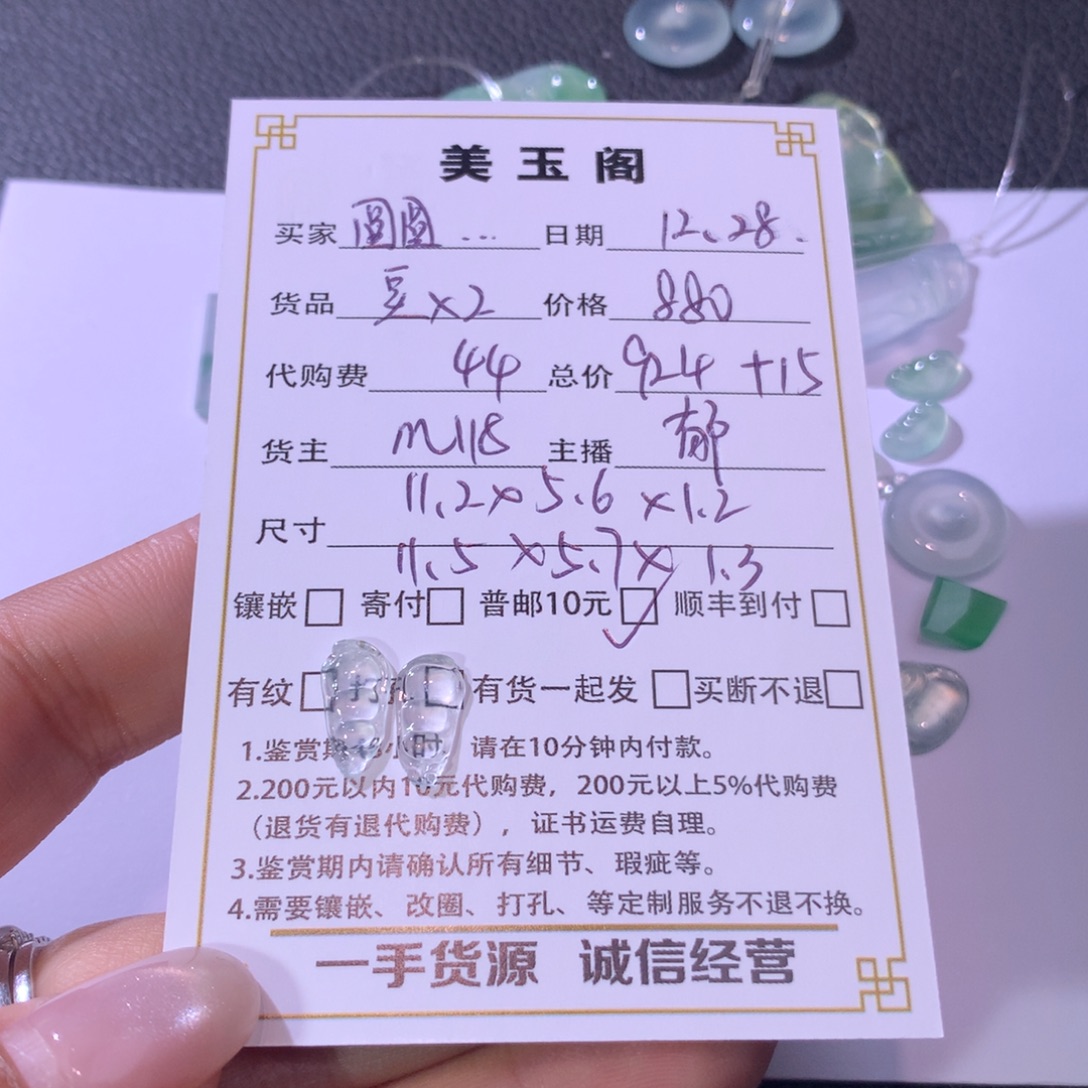 美玉阁
买家 圆圆... 日期 12.28.
货品 豆x2 价格 880
代购费 44 总价 924 +15
货主 m118 主播 郁
11.2x5.6x1.2
尺寸
11.5x5.7x1.3
镶嵌□ 寄付□ 普邮10元☑ 顺丰到付□
有纹□ □ 有货一起发 □买断不退□
1.鉴赏期 小时 请在10分钟内付款。
2.200元以内10元代购费，200元以上5%代购费
（退货有退代购费），证书运费自理。
3.鉴赏期内请确认所有细节、瑕疵等。
4.需要镶嵌、改圈、打孔、等定制服务不退不换。
一手货源 诚信经营